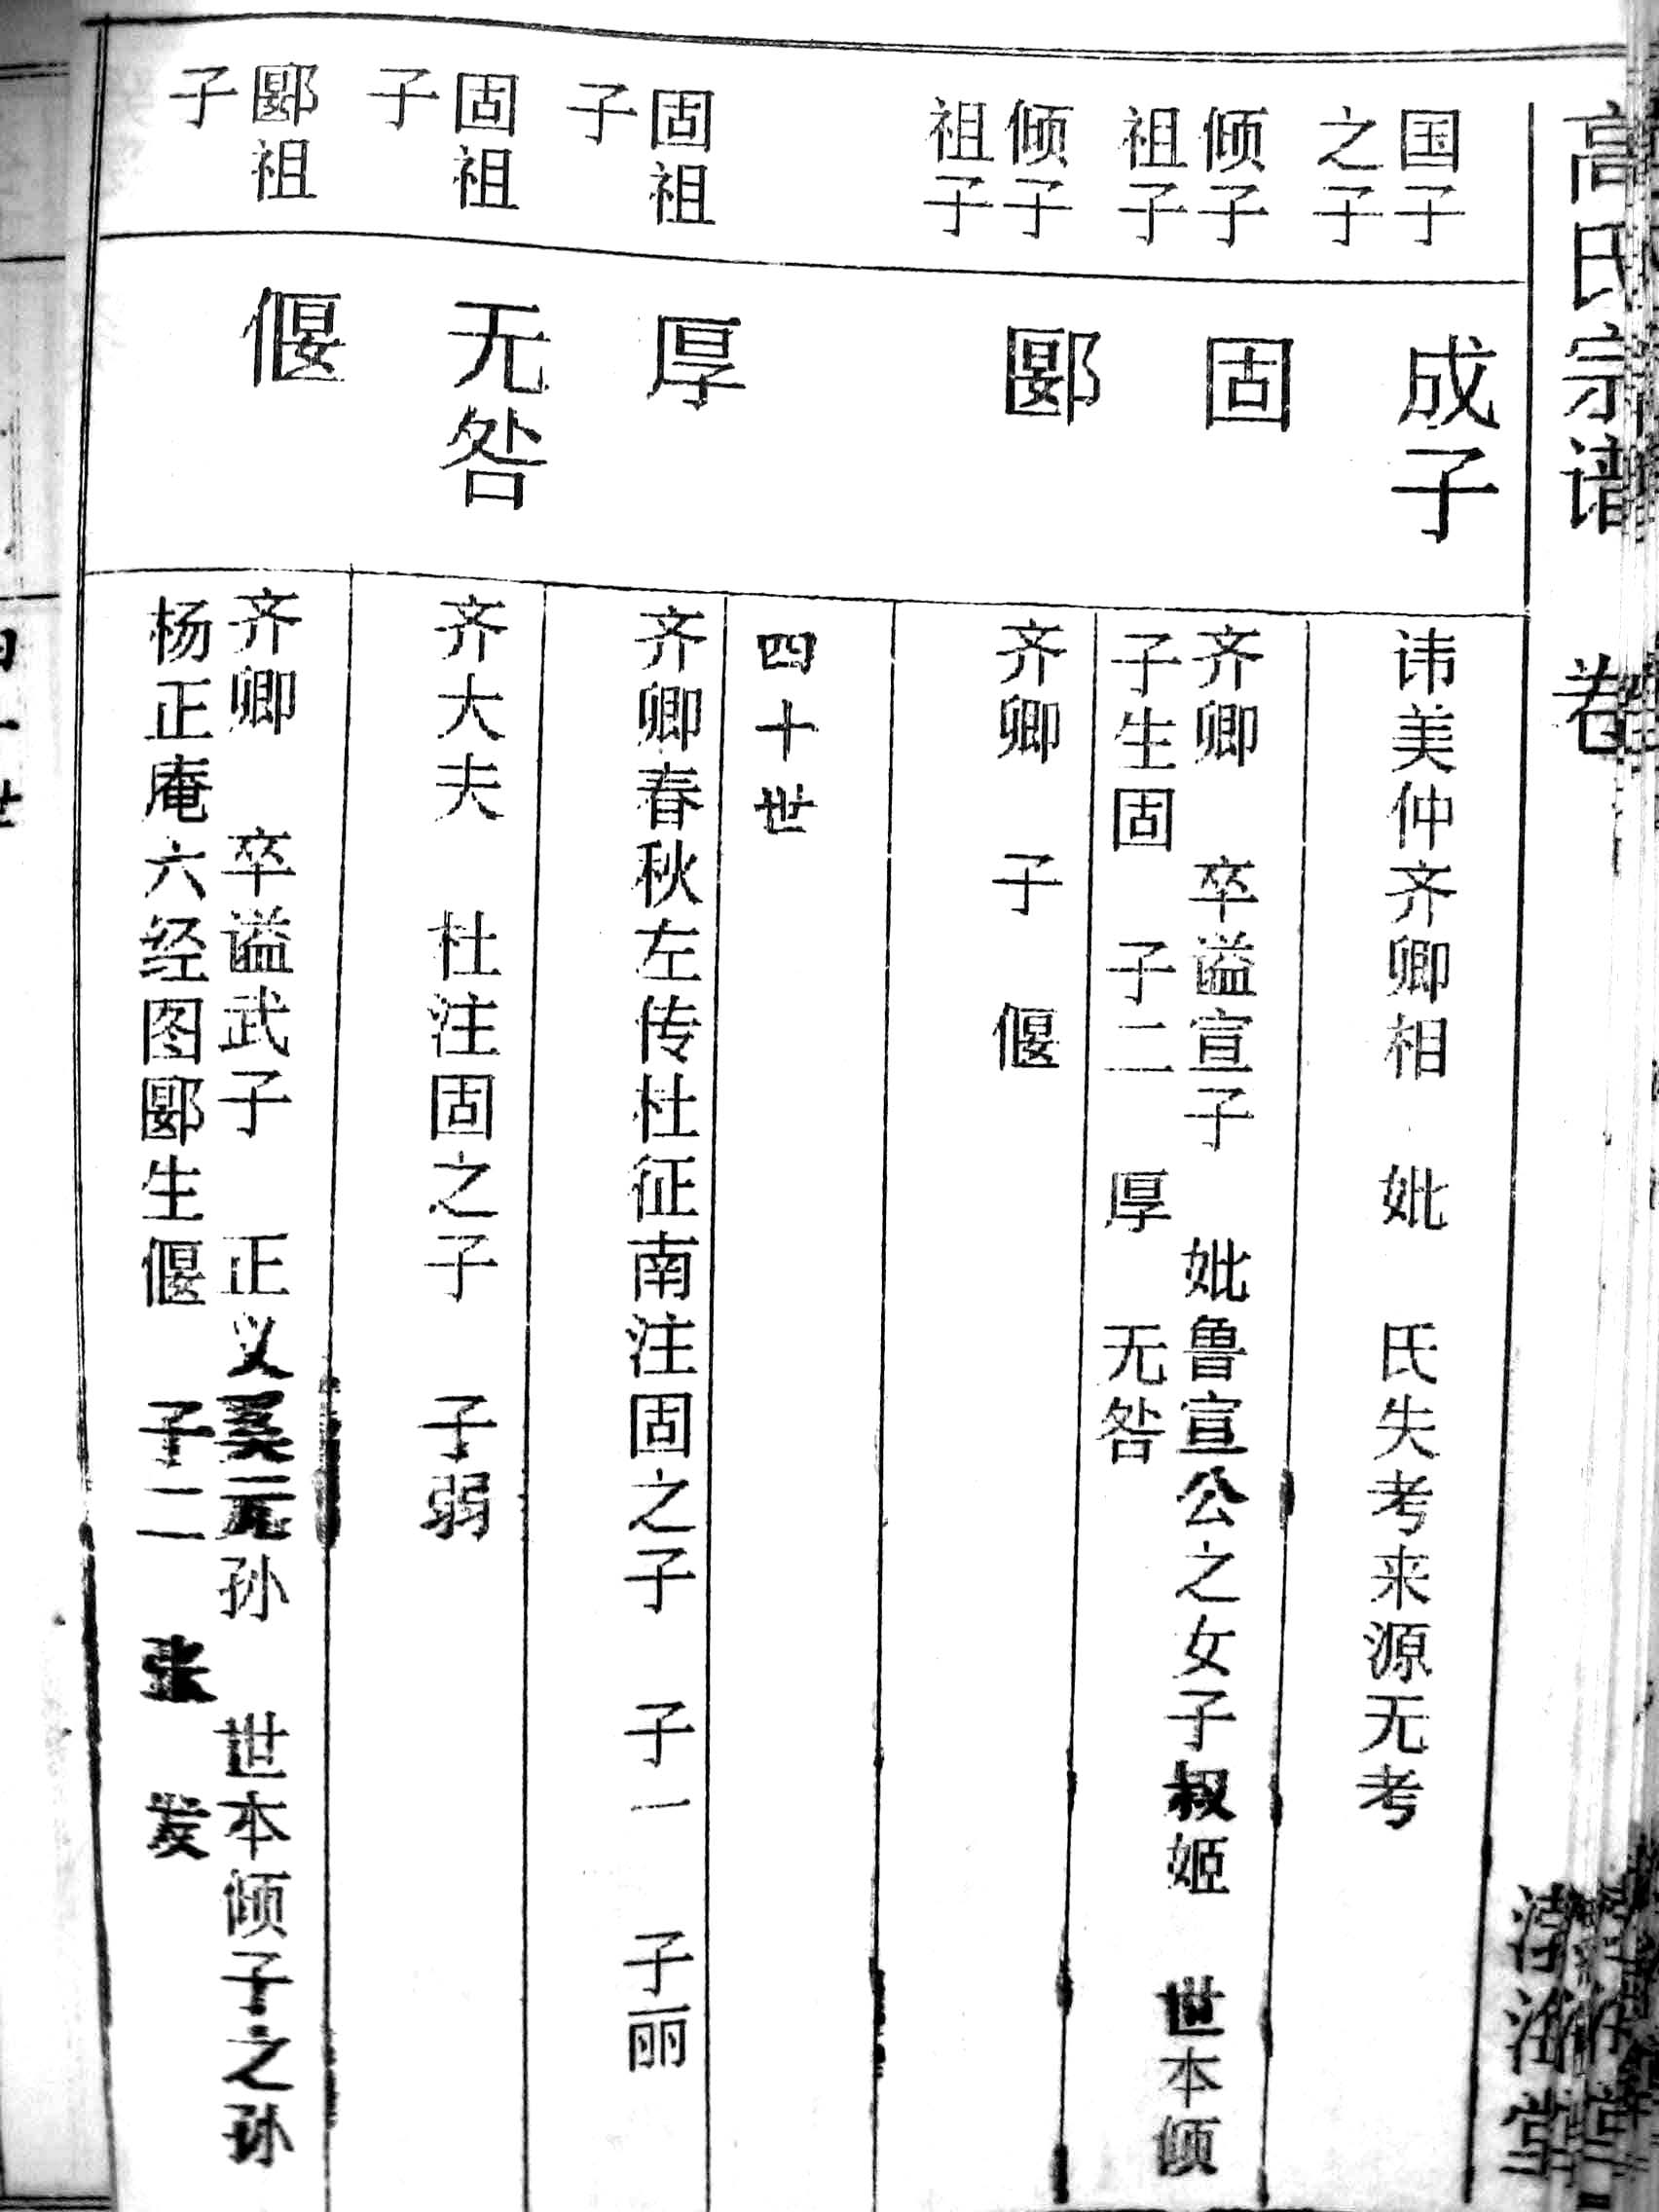 高氏宗谱 卷
国子
之子
成子
讳美仲齐卿相 妣 氏失考来源无考
倾子
祖子
固
齐卿 卒谥宣子 妣鲁宣公之女子叔姬 世本倾
子生固 子二 厚 无咎
倾子
祖子
郾
齐卿 子 偃
四十世
固祖
子
厚
齐卿春秋左传杜征南注固之子 子一 子丽
固祖
子
无咎
齐大夫 杜注固之子 子弱
郾祖
子
偃
齐卿 卒谥武子 正义奚元孙 世本倾子之孙
杨正庵六经图郾生偃 子二 张 发